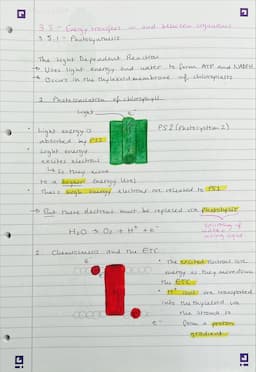 3.5 - Energy transfers in and between organisms
3.5.1 - Photosynthesis
The Light Dependent Reaction
→ Uses light energy and water to form ATP and NADPH
→ Occurs in the thylakoid membrane of chloroplasts
1. Photoionisation of chlorophyll
Light
e⁻
PS2 (Photosystem 2)
• Light energy is
absorbed by PS2
• Light energy
excites electrons
↳ so they move
to a higher energy level
• These high energy electrons are released to PS1
→ But these electrons must be replaced via photolysis
splitting of
water
using light
H₂O → O₂ + H⁺ + e⁻
2. Chemiosmosis and the ETC
• The excited electrons lose
energy as they move down
the ETC
• H⁺ ions are transported
into the thylakoid via
the stroma to
form a proton
gradient
e⁻